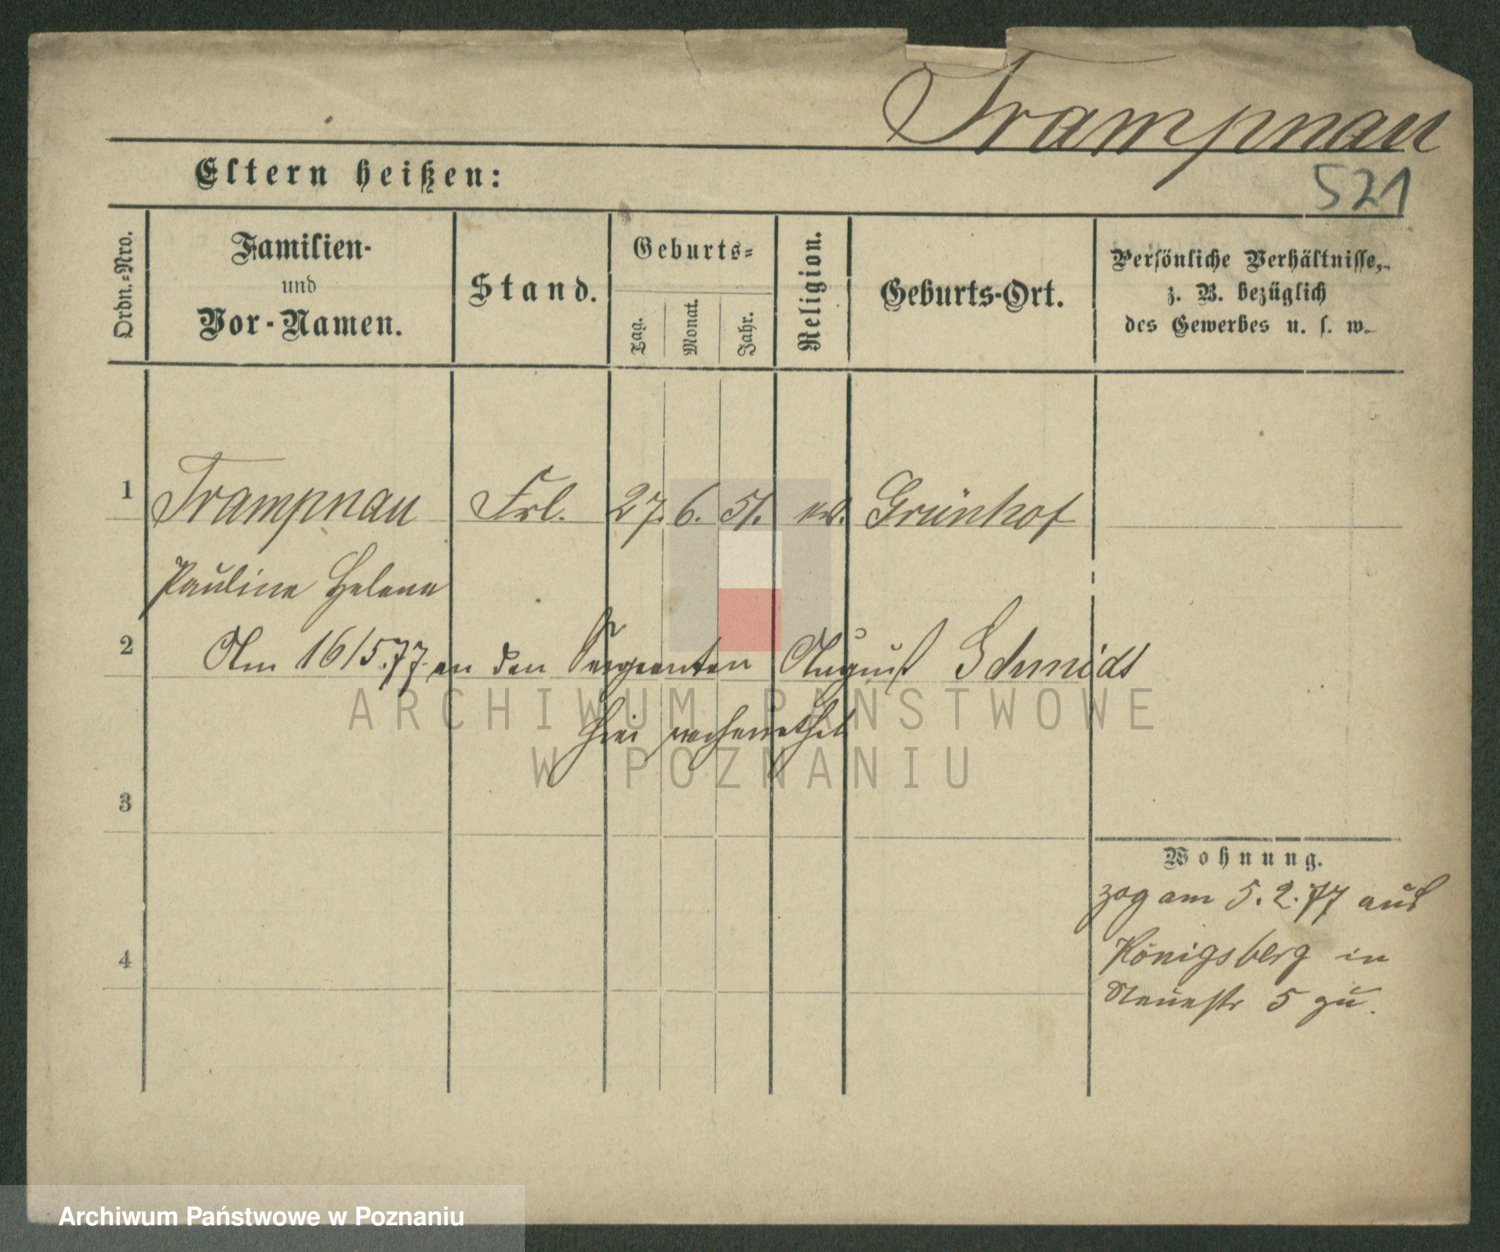 Trampnau
521
Eltern heißen:
Ordn.-Nro.
Familien-
und
Vor-Namen.
Stand.
Geburts-
Tag.
Monat.
Jahr.
Religion.
Geburts-Ort.
Persönliche Verhältnisse,
z. B. bezüglich
des Gewerbes u. s. w.
1 Trampnau Frl. 27. 6. 51. ev. Grünhof
Pauline Helene
2 Am 16/5.77 an den Sergeanten August Schmidt
hier verheirathet
3
Wohnung.
zog am 5.2.77 aus
Königsberg in
4
Neuestr 5 zu.
ARCHIWUM PAŃSTWOWE
W POZNANIU
Archiwum Państwowe w Poznaniu